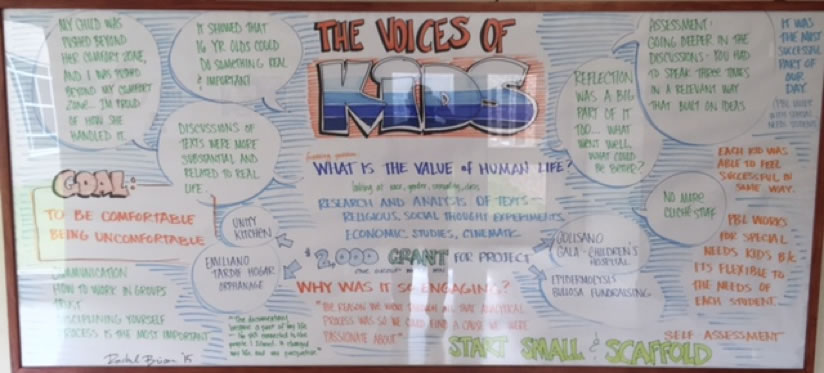 MY CHILD WAS
PUSHED BEYOND
HER COMFORT ZONE,
AND I WAS PUSHED
BEYOND MY COMFORT
ZONE... I'M PROUD
OF HOW SHE
HANDLED IT.
IT SHOWED THAT
16 YR OLDS COULD
DO SOMETHING REAL
& IMPORTANT!
DISCUSSIONS OF
TEXTS WERE MORE
SUBSTANTIAL AND
RELATED TO REAL
LIFE
GOAL:
TO BE COMFORTABLE
BEING UNCOMFORTABLE
COMMUNICATION
HOW TO WORK IN GROUPS
TRUST
DISCIPLINING YOURSELF
PROCESS IS THE MOST IMPORTANT
Rachel '15
THE VOICES OF
KIDS
WHAT IS THE VALUE of HUMAN LIFE?
looking at race, gender, sexuality, class
RESEARCH AND ANALYSIS OF TEXTS -
RELIGIOUS, SOCIAL THOUGHT EXPERIMENTS
ECONOMIC, STUDIES, CINEMATIC
$2,000 GRANT FOR PROJECT
UNITY
KITCHEN
EMILIANO
TARDIF HOGAR
ORPHANAGE
GOLISANO
GALA - CHILDREN'S
HOSPITAL
EPIDERMOLYSIS
BULLOSA FUNDRAISING
WHY WAS IT SO ENGAGING?
REASON WE WENT THROUGH ALL THAT ANALYTICAL
PROCESS WAS SO WE COULD FIND A CAUSE WE WERE
PASSIONATE ABOUT"
"The documentary
became a part of my life
connected to the
people I filmed. It changed
my life and my perspective"
START SMALL & SCAFFOLD
REFLECTION
WAS A BIG
PART OF IT
TOO... WHAT
WENT WELL,
WHAT COULD
BE BETTER?
ASSESSMENT:
GOING DEEPER IN THE
DISCUSSIONS - YOU HAD
TO SPEAK THREE TIMES
IN A RELEVANT WAY
THAT BUILT ON IDEAS
IT WAS
THE MOST
SUCCESSFUL
PART OF
OUR
DAY
WITH SPECIAL
NEEDS STUDENTS
NO MORE
CLICHÉ STUFF
EACH KID WAS
ABLE TO FEEL
SUCCESSFUL IN
SOME WAY.
PBL WORKS
FOR SPECIAL
NEEDS KIDS B/C
ITS FLEXIBLE TO
THE NEEDS OF
EACH STUDENT.
SELF ASSESSMENT